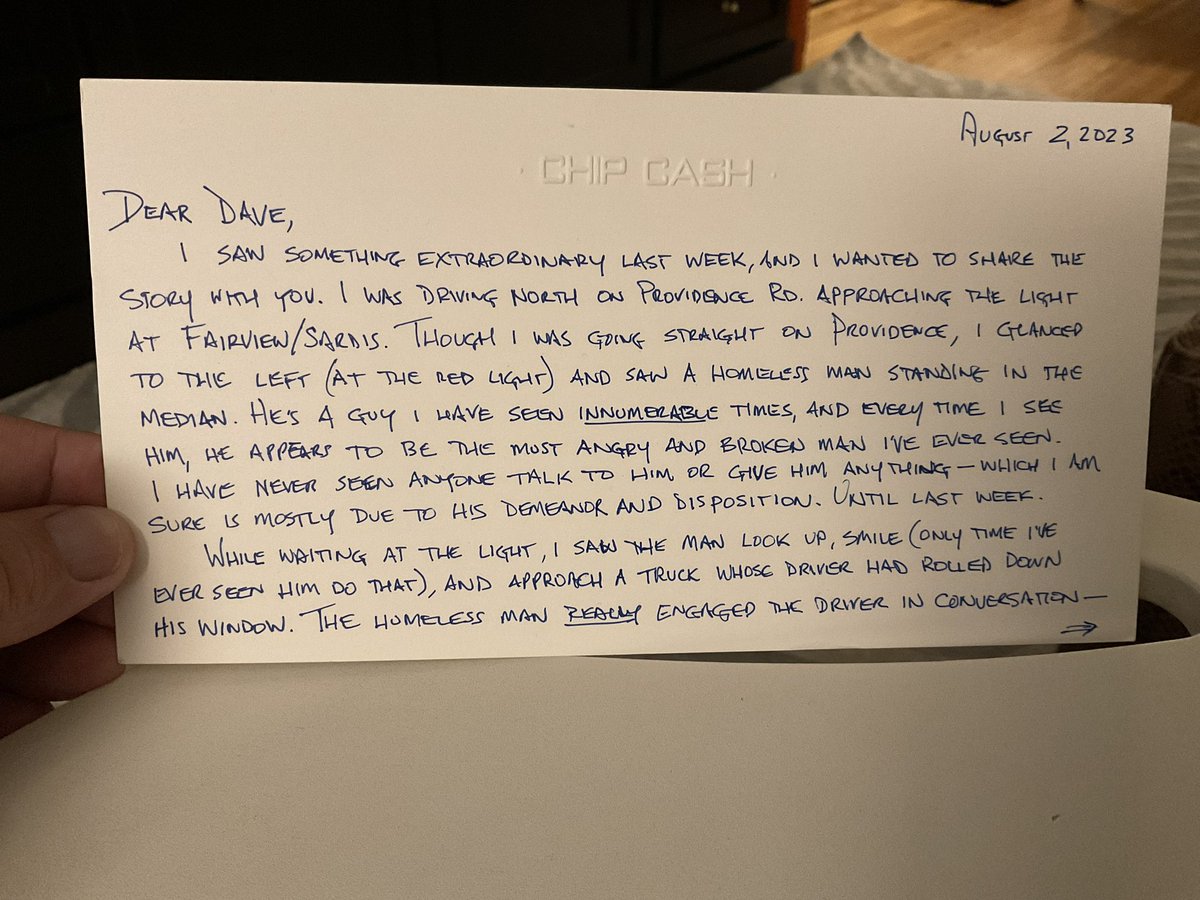 August 2, 2023
· CHIP CASH ·
Dear Dave,
I saw something extraordinary last week, and I wanted to share the
story with you. I was driving north on Providence Rd. approaching the light
at Fairview/Sardis. Though I was going straight on Providence, I glanced
to the left (at the red light) and saw a homeless man standing in the
median. He's a guy I have seen innumerable times, and every time I see
him, he appears to be the most angry and broken man I've ever seen.
I have never seen anyone talk to him or give him anything – which I am
sure is mostly due to his demeanor and disposition. Until last week.
While waiting at the light, I saw the man look up, smile (only time I've
ever seen him do that), and approach a truck whose driver had rolled down
his window. The homeless man really engaged the driver in conversation –
→